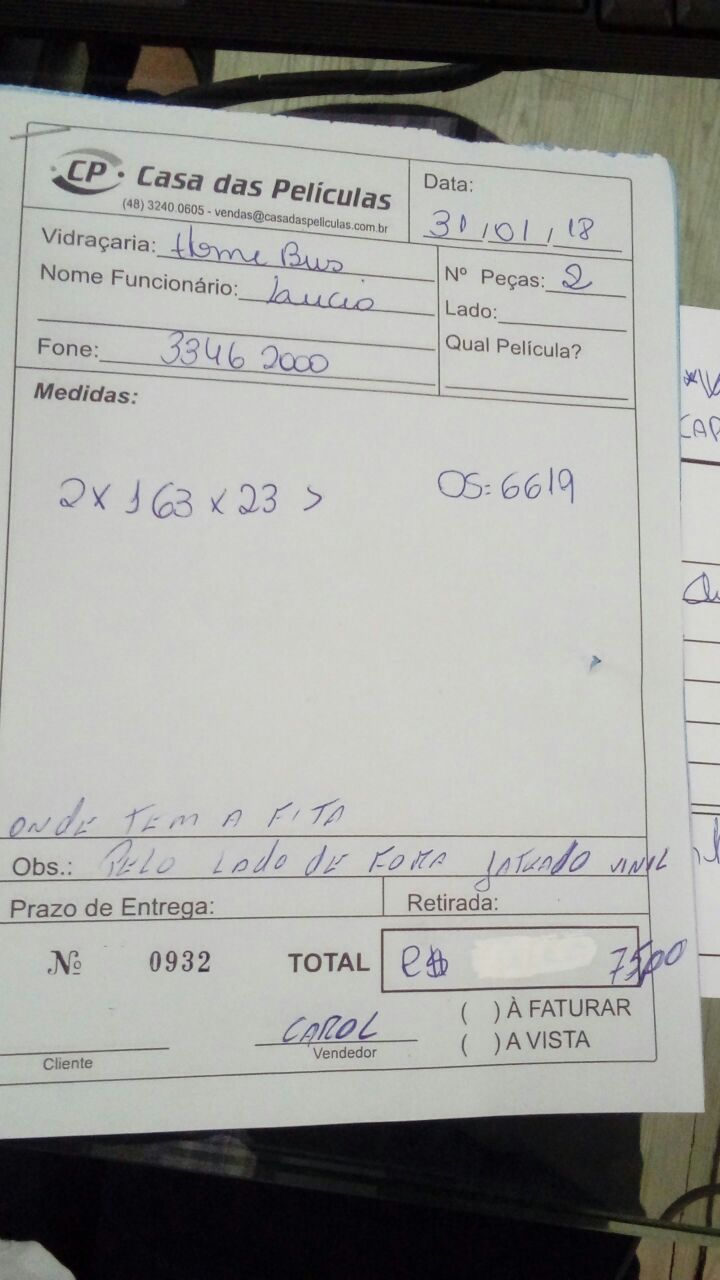 CP · Casa das Películas
(48) 3240 0605 - vendas@casadaspeliculas.com.br
Data:
31/01/18
Vidraçaria: Home Bus
Nome Funcionário:
Fone: 3346 2000
Nº Peças: 2
Lado:
Qual Película?
Medidas:
2 x 163 x 23 >
OS: 6619
ONDE TEM A FITA
Obs.: PELO LADO DE FORA JATEADO VINIL
Prazo de Entrega:
Retirada:
Nº 0932
TOTAL R$ 7500
CAROL
Cliente
Vendedor
( ) À FATURAR
( ) A VISTA